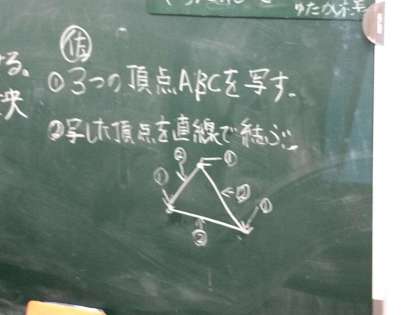 ゆたかい様
る。
央
佐
①3つの頂点ABCを写す。
②写した頂点を直線で結ぶ。
② ①
① ②
①
②